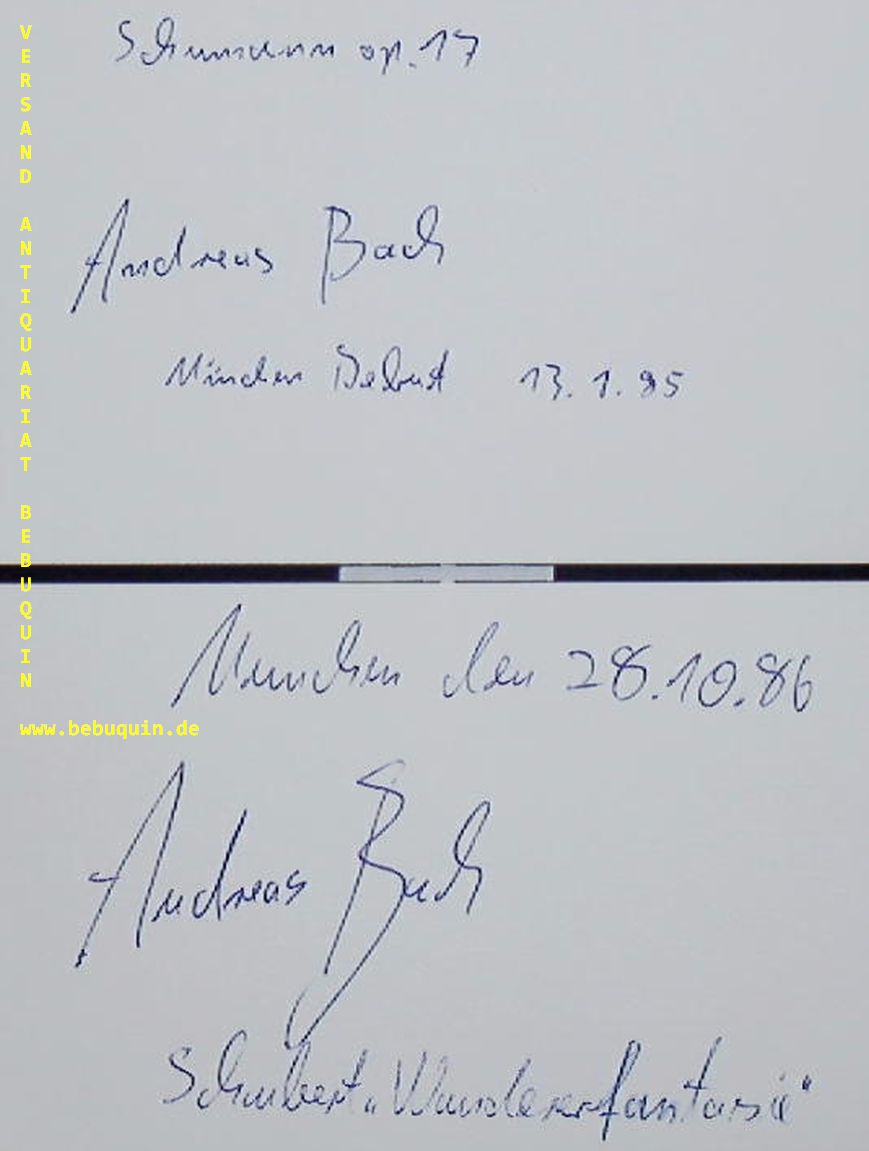 Schumann op. 17
Andreas Bach
München Debut 13. 1. 85
München den 28.10.86
Andreas Bach
Schubert „Wandererfantasie“
VERSAND ANTIQUARIAT BEBUQUIN
www.bebuquin.de